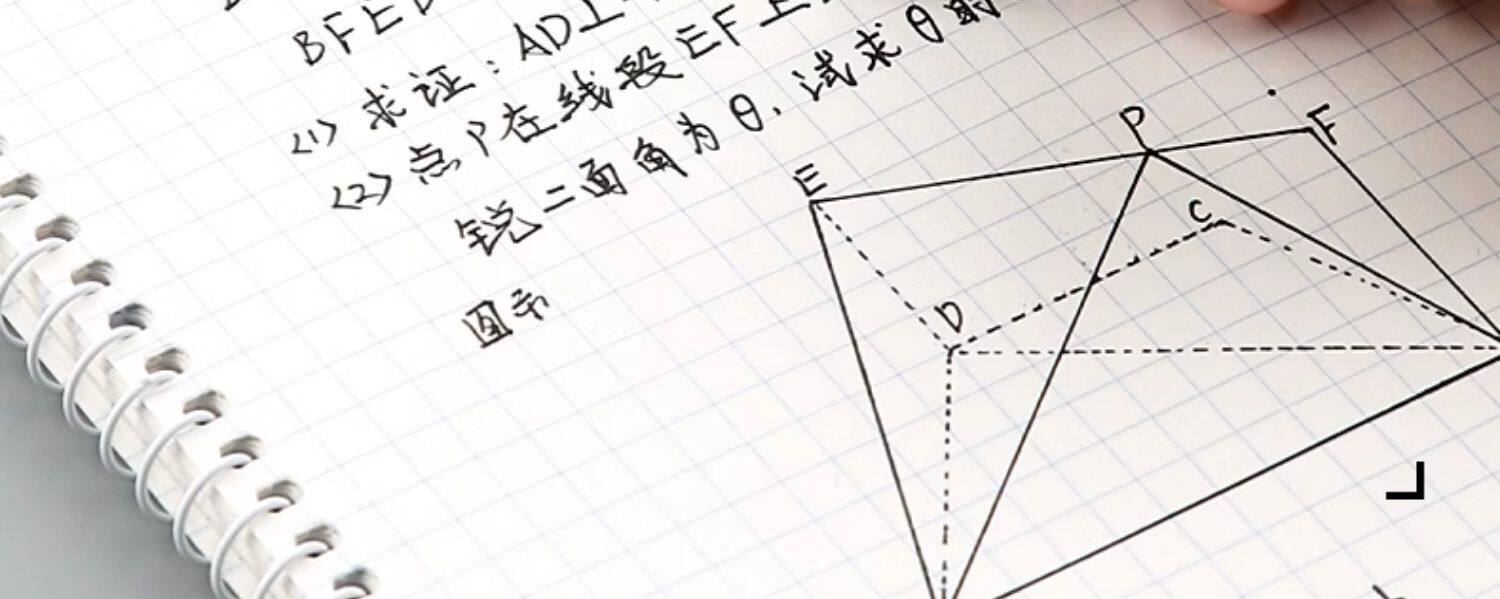 BFED
(1) 求证：AD⊥
(2) 点P在线段EF上
锐二面角为θ. 试求θ的
图示
P
F
E
C
D